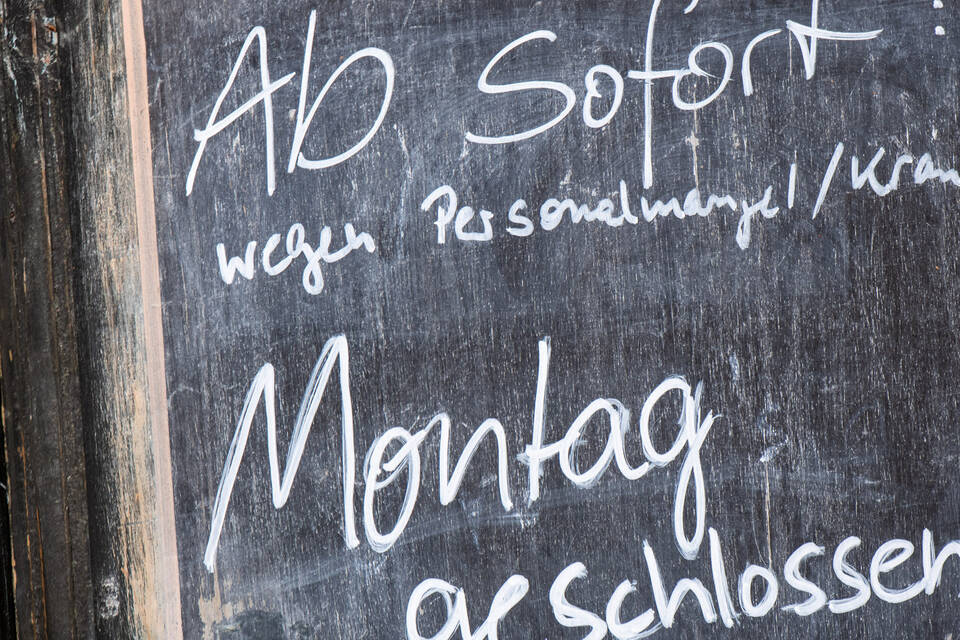 Ab Sofort :
wegen Personalmangel/Kran
Montag
geschlossen